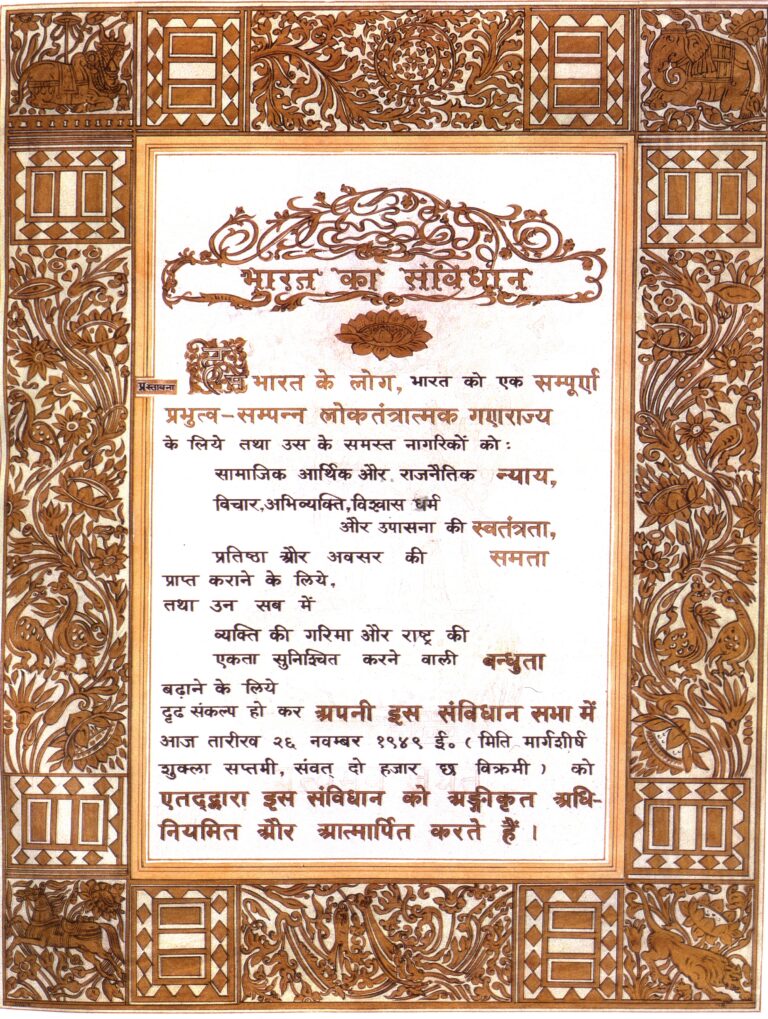 भारत का संविधान
प्रस्तावना
हम भारत के लोग, भारत को एक सम्पूर्ण
प्रभुत्व-सम्पन्न लोकतंत्रात्मक गणराज्य
के लिये तथा उस के समस्त नागरिकों को:
सामाजिक आर्थिक और राजनैतिक न्याय,
विचार,अभिव्यक्ति,विश्वास धर्म
और उपासना की स्वतंत्रता,
प्रतिष्ठा और अवसर की समता
प्राप्त कराने के लिये,
तथा उन सब में
व्यक्ति की गरिमा और राष्ट्र की
एकता सुनिश्चित करने वाली बन्धुता
बढ़ाने के लिये
दृढ संकल्प हो कर अपनी इस संविधान सभा में
आज तारीख २६ नवम्बर १९४९ ई॰ (मिति मार्गशीर्ष
शुक्ला सप्तमी, संवत् दो हजार छ विक्रमी) को
एतद्द्वारा इस संविधान को अङ्गीकृत अधि-
नियमित और आत्मार्पित करते हैं।